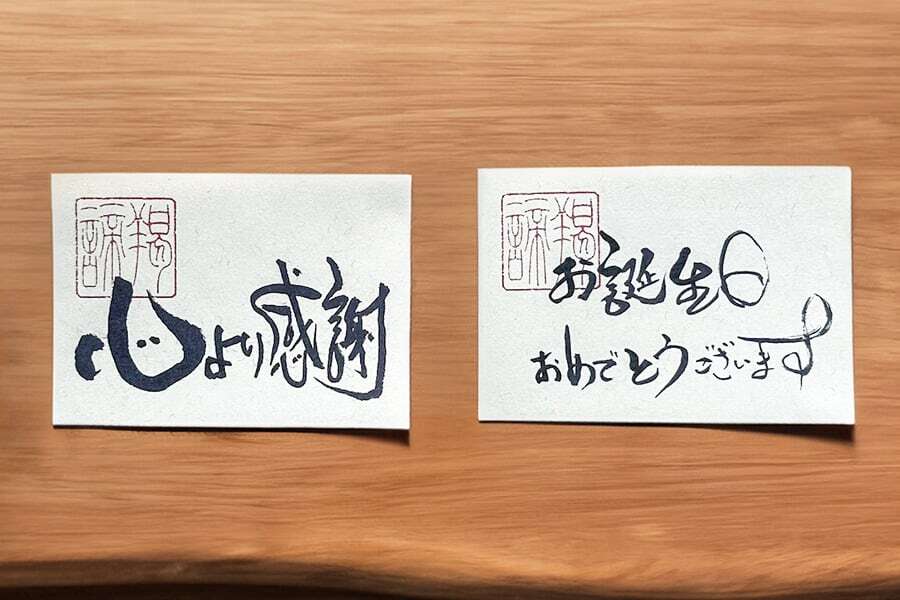 心より感謝
お誕生日
おめでとうございます